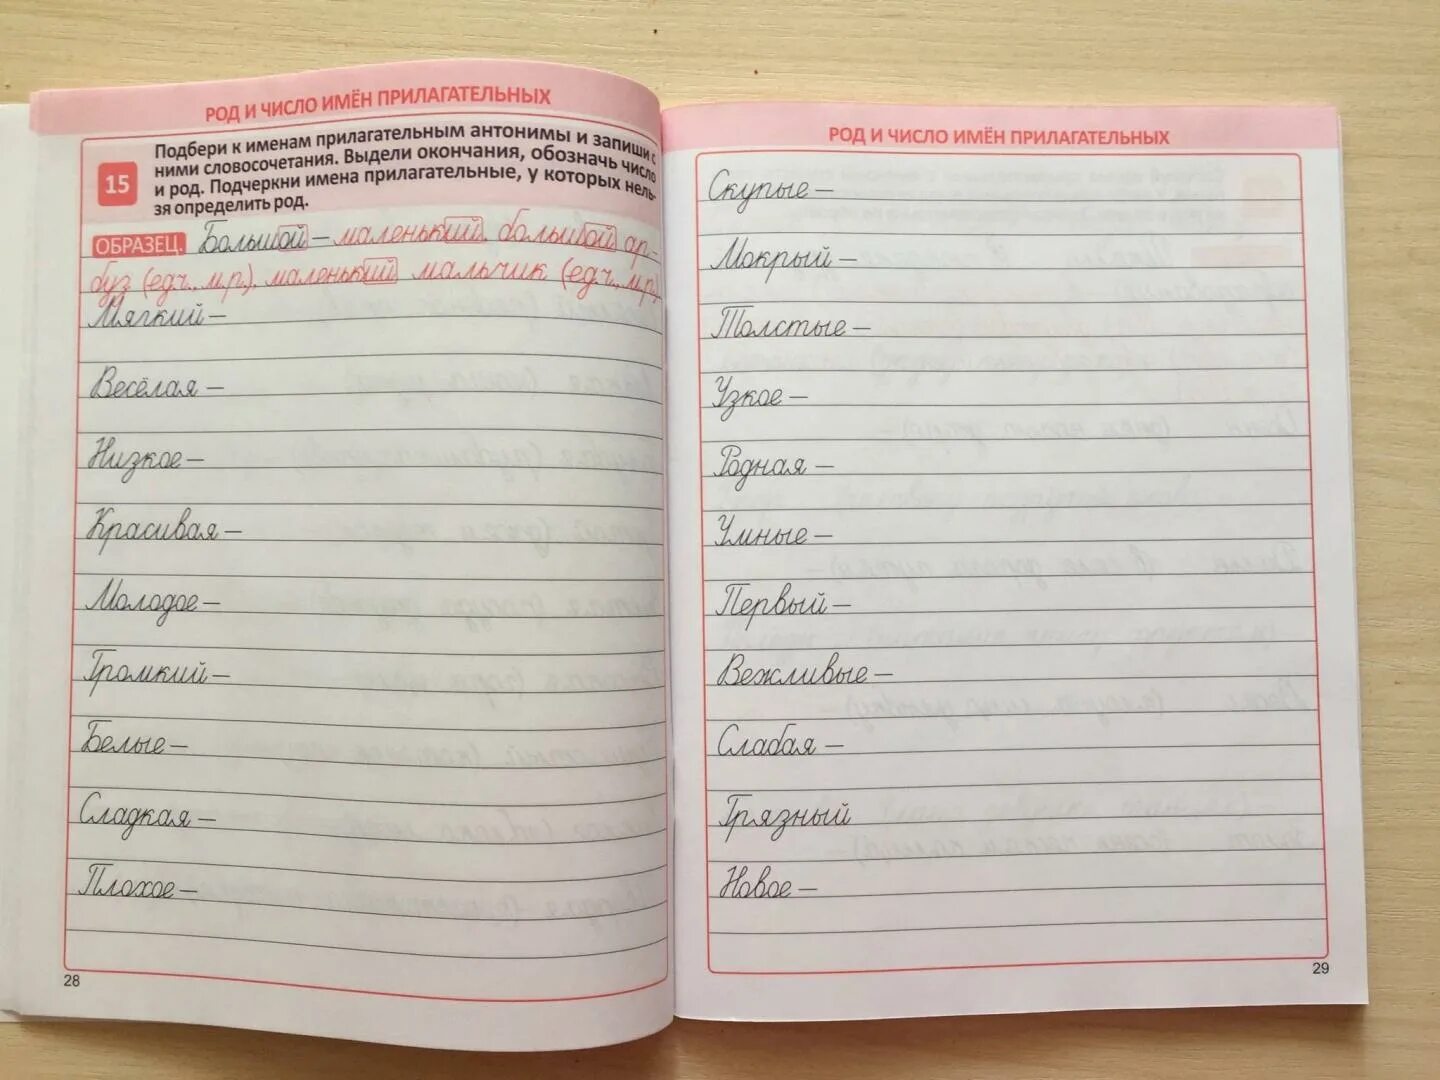 РОД И ЧИСЛО ИМЁН ПРИЛАГАТЕЛЬНЫХ
15
Подбери к именам прилагательным антонимы и запиши с
ними словосочетания. Выдели окончания, обозначь число
и род. Подчеркни имена прилагательные, у которых нель-
зя определить род.
ОБРАЗЕЦ. Большой – маленький, большой ар-
буз (ед.ч., м.р.), маленький мальчик (ед.ч., м.р.)
Мягкий –
Весёлая –
Низкое –
Красивая –
Молодое –
Громкий –
Белые –
Сладкая –
Плохое –
28
РОД И ЧИСЛО ИМЁН ПРИЛАГАТЕЛЬНЫХ
Скупые –
Мокрый –
Толстые –
Узкое –
Родная –
Умные –
Первый –
Вежливые –
Слабая –
Грязный
Новое –
29